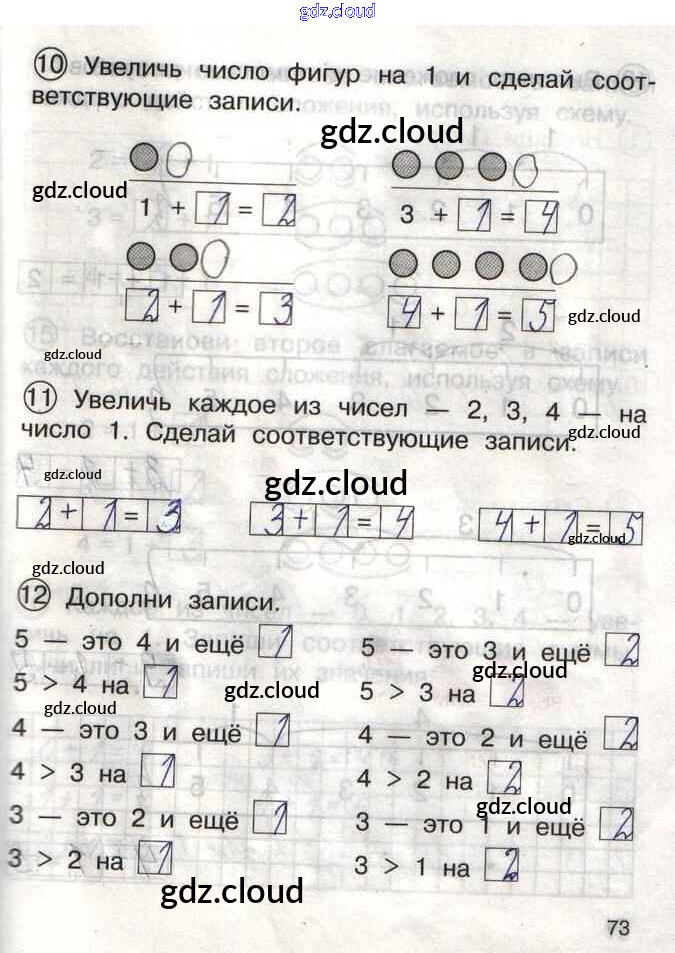 gdz.cloud
10 Увеличь число фигур на 1 и сделай соот-
ветствующие записи.
gdz.cloud
gdz.cloud gdz.cloud
1 + 1 = 2 3 + 1 = 4
2 + 1 = 3 4 + 1 = 5
gdz.cloud
gdz.cloud
11 Увеличь каждое из чисел — 2, 3, 4 — на
число 1. Сделай соответствующие записи.
gdz.cloud gdz.cloud
2 + 1 = 3 3 + 1 = 4 4 + 1 = 5
gdz.cloud
gdz.cloud
12 Дополни записи.
5 — это 4 и ещё 1 5 — это 3 и ещё 2
gdz.cloud gdz.cloud
5 > 4 на 1 5 > 3 на 2
gdz.cloud gdz.cloud
4 — это 3 и ещё 1 4 — это 2 и ещё 2
4 > 3 на 1 4 > 2 на 2
gdz.cloud
3 — это 2 и ещё 1 3 — это 1 и ещё 2
3 > 2 на 1 3 > 1 на 2
gdz.cloud
73